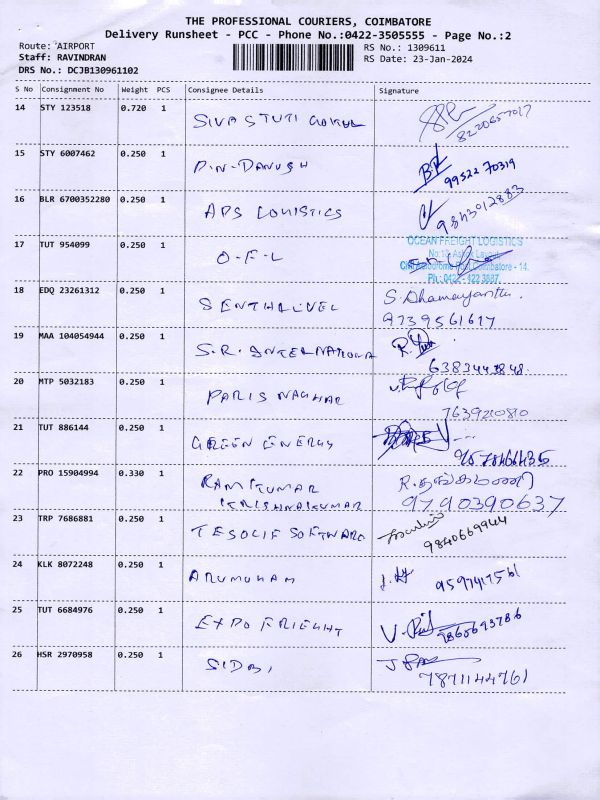 THE PROFESSIONAL COURIERS, COIMBATORE
Delivery Runsheet - PCC - Phone No.:0422-3505555 - Page No.:2
Route: AIRPORT RS No.: 1309611
Staff: RAVINDRAN RS Date: 23-Jan-2024
DRS No.: DCJB130961102
S No Consignment No Weight PCS Consignee Details Signature
14 STY 123518 0.720 1 SIVA STUTI GOKUL
8220657017
15 STY 6007462 0.250 1 P.N-DANUSH
99522 70319
16 BLR 6700352280 0.250 1 APS LOGISTICS 9843012883
17 TUT 954099 0.250 1 O-F-L OCEAN FREIGHT LOGISTICS
18 EDQ 23261312 0.250 1 SENTHILVEL S. Dhamayanthi
9739561617
19 MAA 104054944 0.250 1 S.R. INTERNATIONAL
6383443848
20 MTP 5032183 0.250 1 PARIS NAGHAR
7639210810
21 TUT 886144 0.250 1 GREEN ENERGY
9578466435
22 PRO 15904994 0.330 1 RAMKUMAR R.தங்கமணி
KRISHNAKUMAR 9790390637
23 TRP 7686881 0.250 1 TESOLIF SOFTWARE
9840669944
24 KLK 8072248 0.250 1 ARUMUGAM
25 TUT 6684976 0.250 1 EXPO FRIEGHT
9865693786
26 HSR 2970958 0.250 1 SIDBI
7871144761